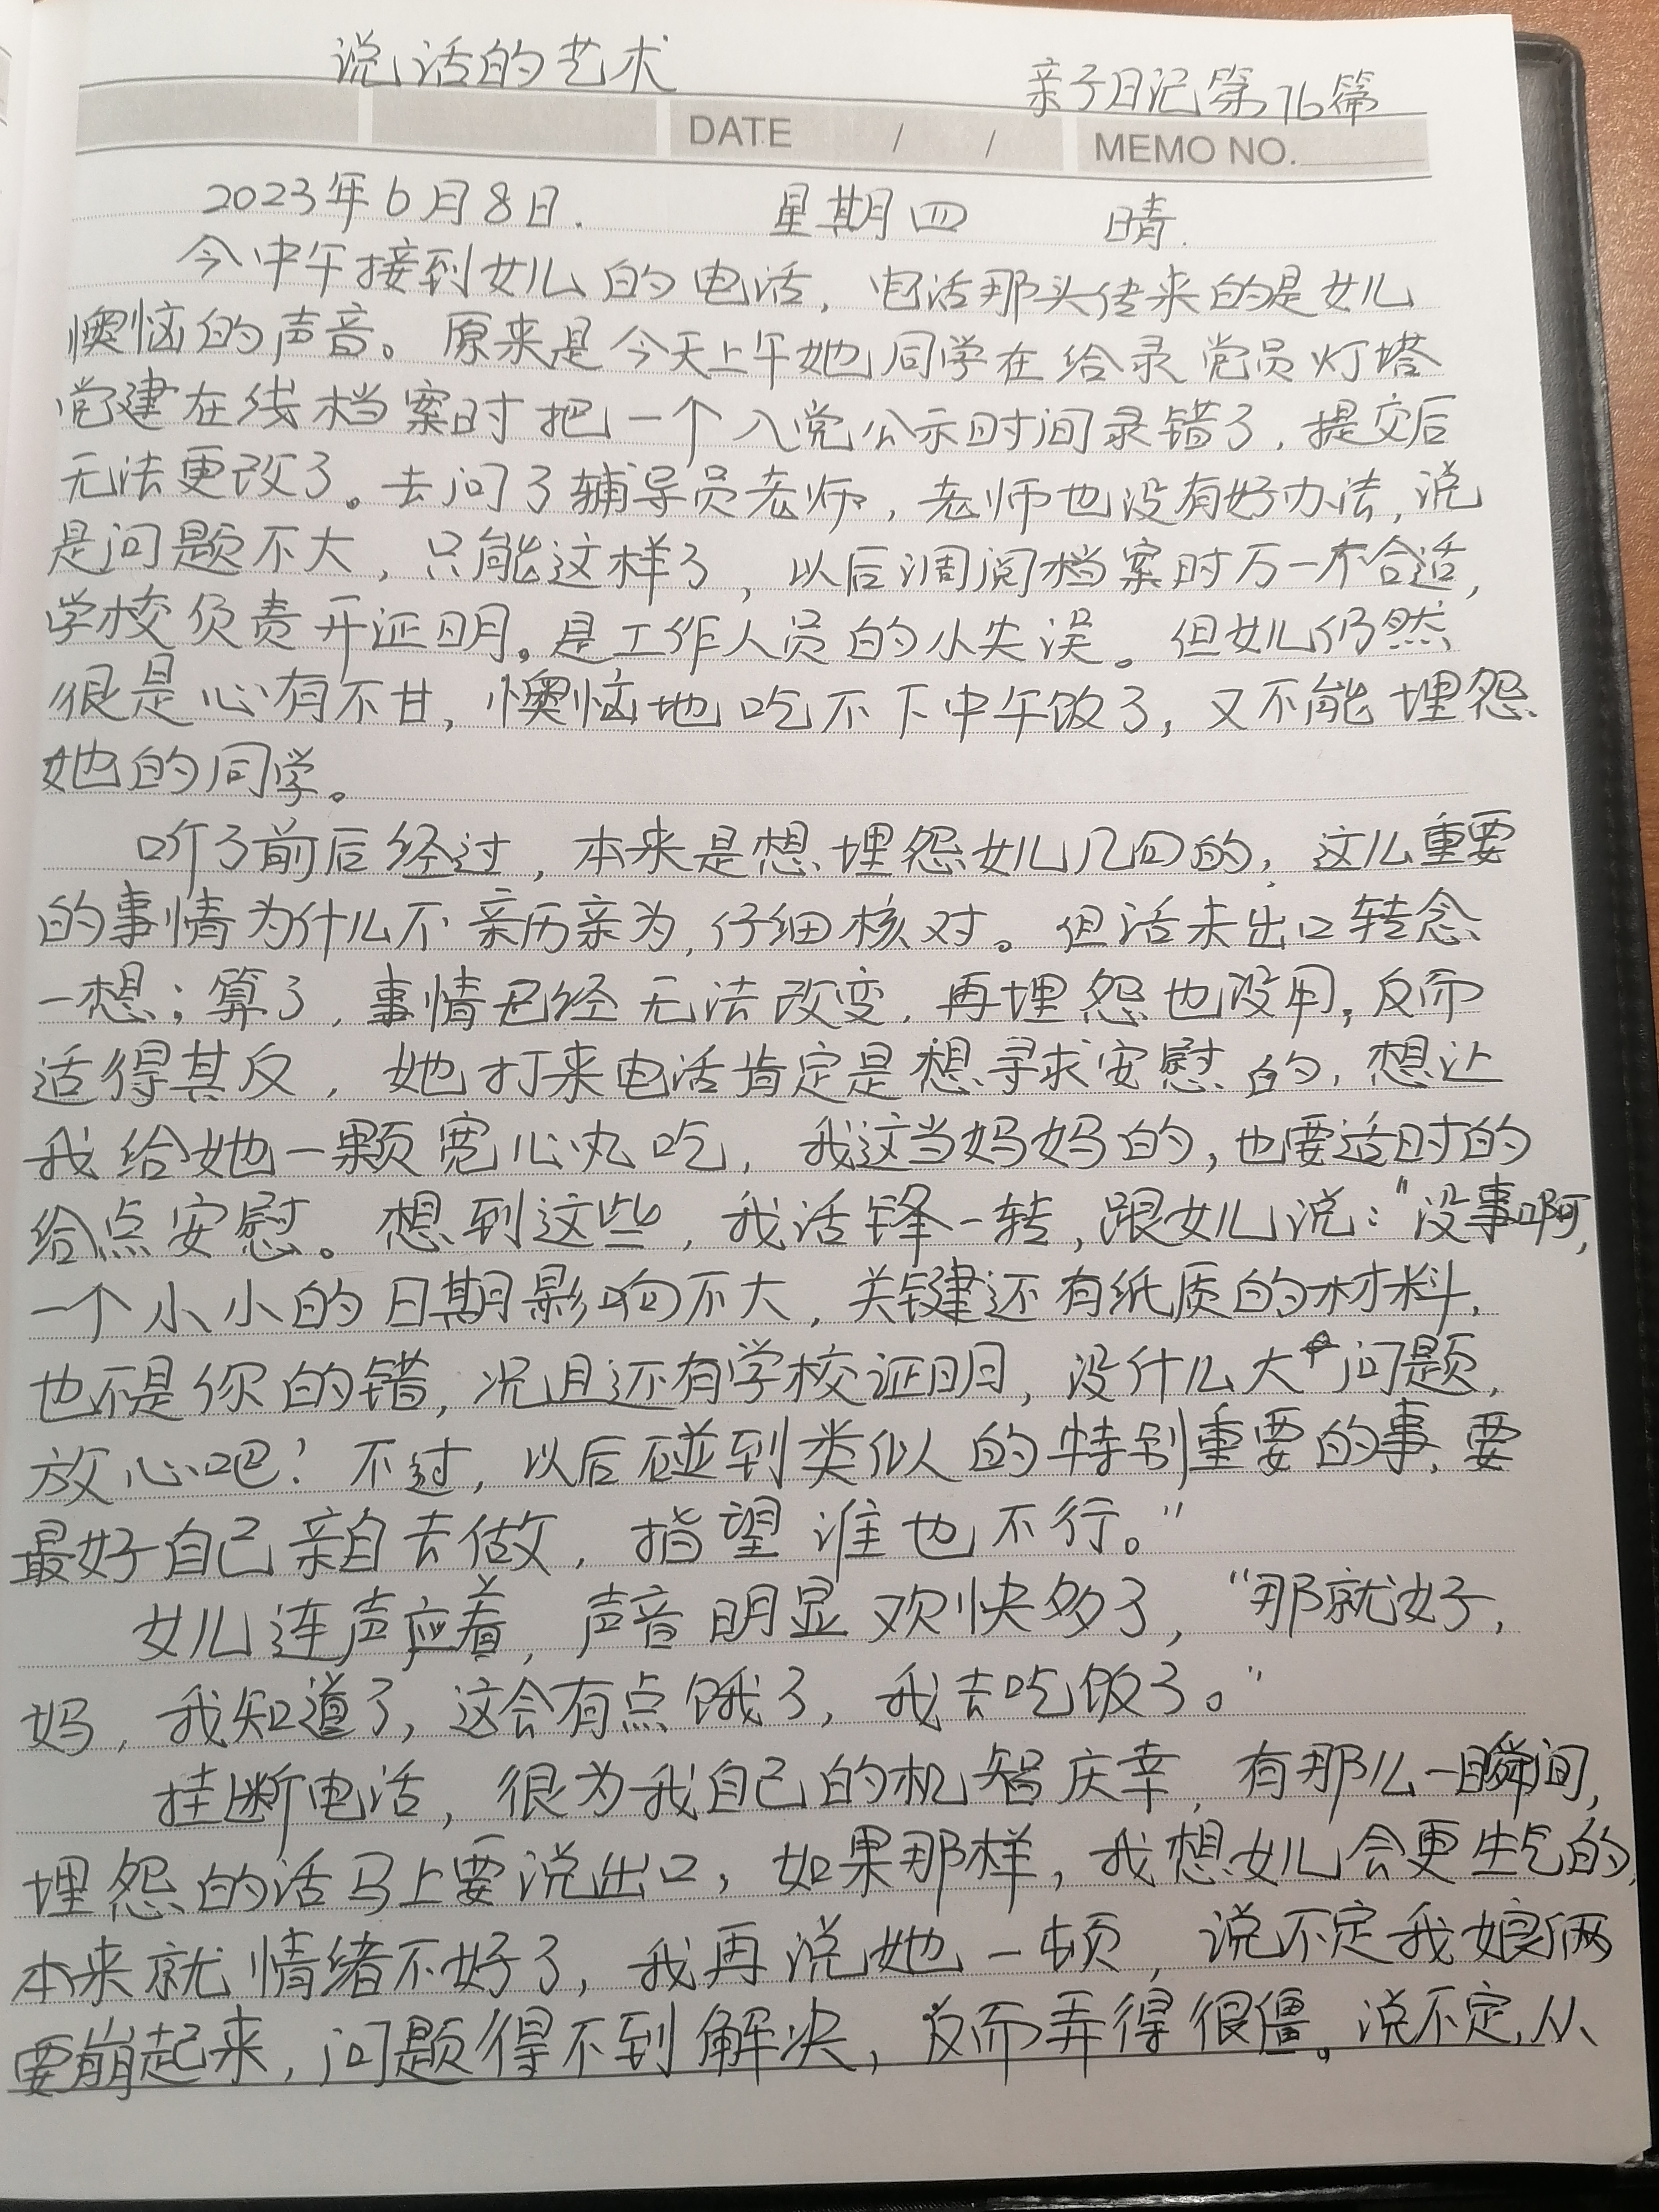 说话的艺术
亲子日记第76篇
DATE / / MEMO NO.
2023年6月8日. 星期四 晴.
今中午接到女儿的电话，电话那头传来的是女儿
懊恼的声音。原来是今天上午她同学在给录党员灯塔
党建在线档案时把一个入党公示时间录错了，提交后
无法更改了。去问了辅导员老师，老师也没有好办法，说
是问题不大，只能这样了，以后调阅档案时万一不合适，
学校负责开证明。是工作人员的小失误。但女儿仍然
很是心有不甘，懊恼地吃不下中午饭了，又不能埋怨
她的同学。
听了前后经过，本来是想埋怨女儿几句的，这么重要
的事情为什么不亲历亲为，仔细核对。但话未出口转念
一想；算了，事情已经无法改变，再埋怨也没用，反而
适得其反，她打来电话肯定是想寻求安慰的，想让
我给她一颗宽心丸吃，我这当妈妈的，也要适时的
给点安慰。想到这些，我话锋一转，跟女儿说：“没事啊，
一个小小的日期影响不大，关键还有纸质的材料，
也不是你的错，况且还有学校证明，没什么大问题，
放心吧！不过，以后碰到类似的特别重要的事，要
最好自己亲自去做，指望谁也不行。”
女儿连声应着，声音明显欢快多了，“那就好，
妈，我知道了，这会有点饿了，我去吃饭了。”
挂断电话，很为我自己的机智庆幸，有那么一瞬间，
埋怨的话马上要说出口，如果那样，我想女儿会更生气的，
本来就情绪不好了，我再说她一顿，说不定我娘俩
要崩起来，问题得不到解决，反而弄得很僵。说不定，从